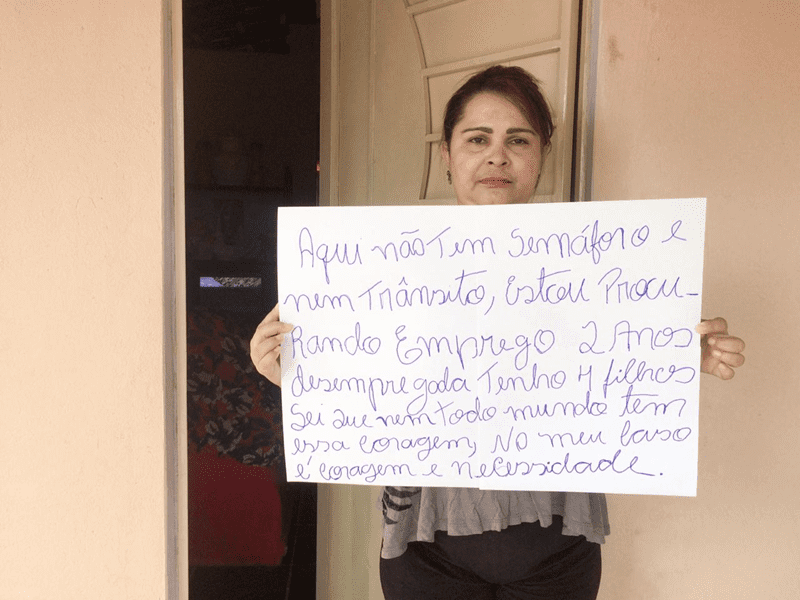 Aqui não Tem Semáforo e
nem Trânsito, Estou Procu-
Rando Emprego 2 Anos
desempregada Tenho 4 filhos
Sei que nem todo mundo tem
essa coragem, No meu Caso
é coragem e necessidade.